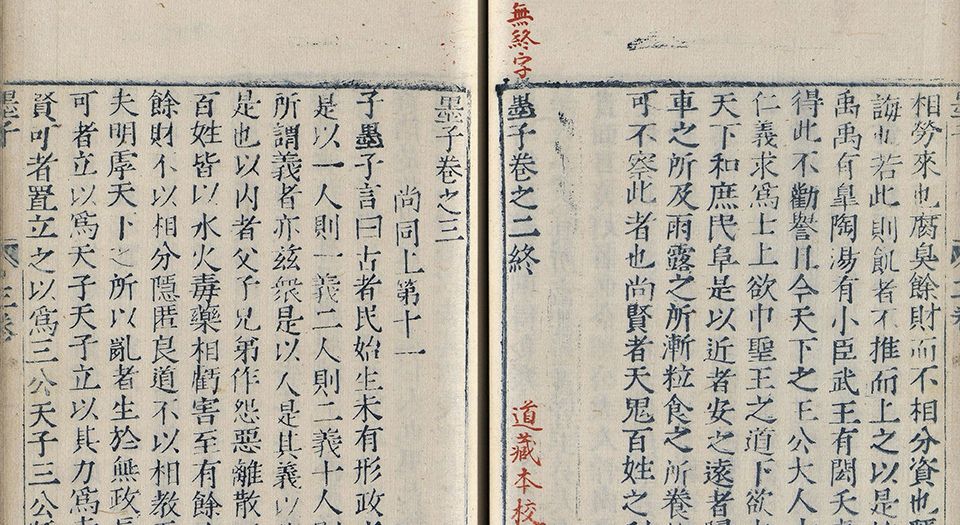 相勞來也腐臭餘財而不相分資也
誨也若此則飢者不推而上之以是
禹禹有皐陶湯有小臣武王有閎夭
得此不勸譽且今天下之王公大人
仁義求爲上上欲中聖王之道下欲
天下和庶民阜是以近者安之遠者歸
車之所及雨露之所漸粒食之所養
可不察此者也尚賢者天鬼百姓之
無終字
墨子卷之二終
道藏本校
墨子卷之三
尚同上第十一
子墨子言曰古者民始生未有形政
是以一人則一義二人則二義十人則
所謂義者亦兹衆是以人是其義以
是也以内者父子兄弟作怨惡離散
百姓皆以水火毒藥相虧害至有餘
餘財不以相分隱匿良道不以相教
夫明虖天下之所以亂者生於無政長
可者立以爲天子天子立以其力爲
賢可者置立之以爲三公天子三公
墨子
三卷